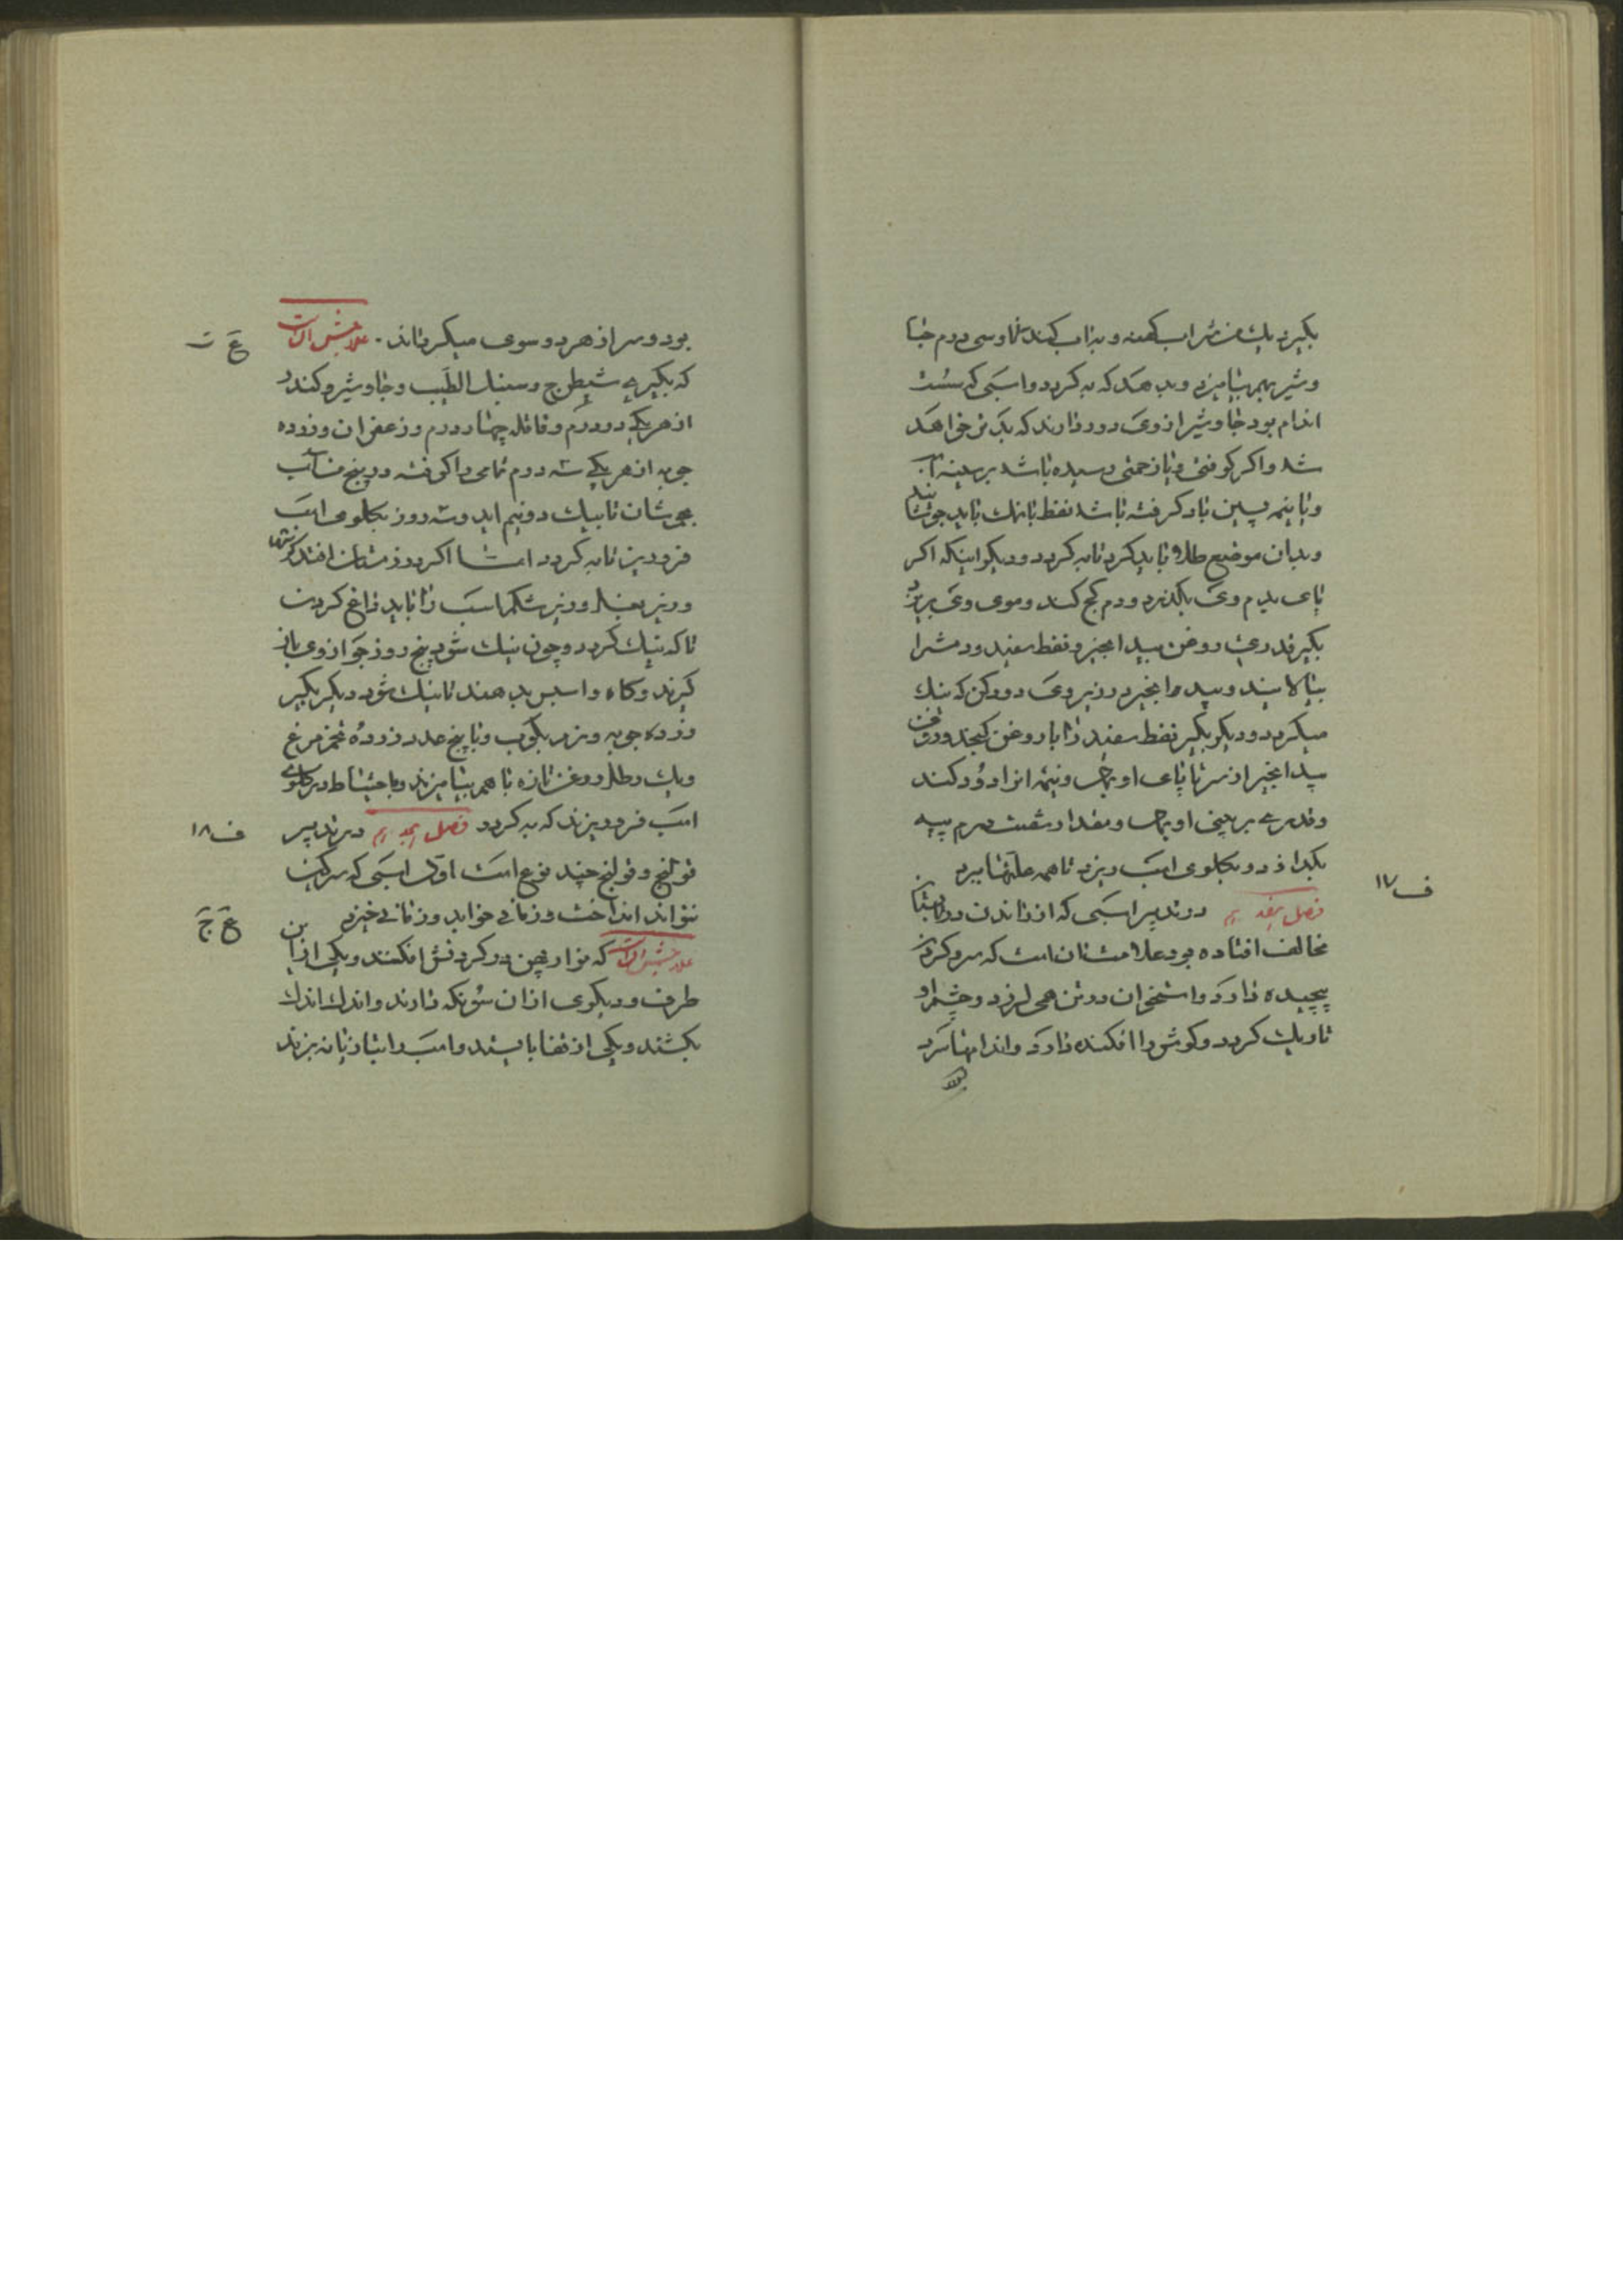 بکیرند یك من شراب کهنه و بدان کنند و سی درم جا
و شیر بهم بیامیزد و بدهد که به کردد و اسبی که سست
اندام بود جاوشیر از وی دور دارند که بتر خواهد
شد و اکر کوفتی و یا زحمتی رسیده باشد بر سینه
و یا نیمه پسین باد کرفته باشد نفط با نمك باید
و بدان موضع طلا باید کرد تا به کردد و دیکر اینکه اکر
پای بدم وی بکذرد و دم کج کند و موی وی بریزد
بکیر قدری روغن بید انجیر و نفط سفید و دمش را
بیالایند و بید انجیر در زیر وی دود کن که نیك
میکردد و دیکر بکیر نفط سفید را با روغن کنجد و روغن
بید انجیر از سر تا پای او بمال و نیمه انرا دود کنند
و قدری بر بینی او بمال و مقدار شصت درم پیه
بکداز و در کلوی اسب ریزد تا همه علتها ببرد
فصل هفدهم در تدبیر اسبی که از راندن
ف ١٧
مخالف افتاده بود علامتش ان است که سر و کردن
پیچیده دارد و استخوان در تن همی لرزد و چشم او
تاریك کردد و کوش را افکنده دارد و اندامها سرد
بود و سر از هر دو سوی میکرداند . علاجش آنست
ع ت
که بکیری شیطرج و سنبل الطیب و جاوشیر و کندر
از هر یکی دو درم و قاقله چهار درم و زعفران و زرده
جوبه از هر یکی سه درم تمامی را کوفته در پنج من آب
بجوشان تا بیك دو نیم اید و سه روز بکلوی اسب
فرو ریز تا به کردد اما اکر در زمستان افتد
و زیر بغل و زیر شکم اسب را باید داغ کردن
تا که نیك کردد و چون نیك شود پنج روز جو از وی باز
کیرند و کاه و اسبس بدهند تا نیك شود دیکر بکیر
زرده جوبه و نرم بکوب و با پنج عدد زرده تخم مرغ
و یك رطل روغن تازه با هم بیامیزند و با احتیاط در کلوی
اسب فرو ریزند که به کردد فصل هجدهم در تدبیر
ف ١٨
قولنج و قولنج چند نوع است اول اسبی که سرکین
نتواند انداخت و زمانی خوابد و زمانی خیزد
علاجش آنست که نوار پهن در کردنش افکنند و یکی از این
ع ج
طرف و دیکری از ان سو نکه دارند و اندك اندك
بکشند و یکی از قفا بایستد و اسب را بتازیانه بزند